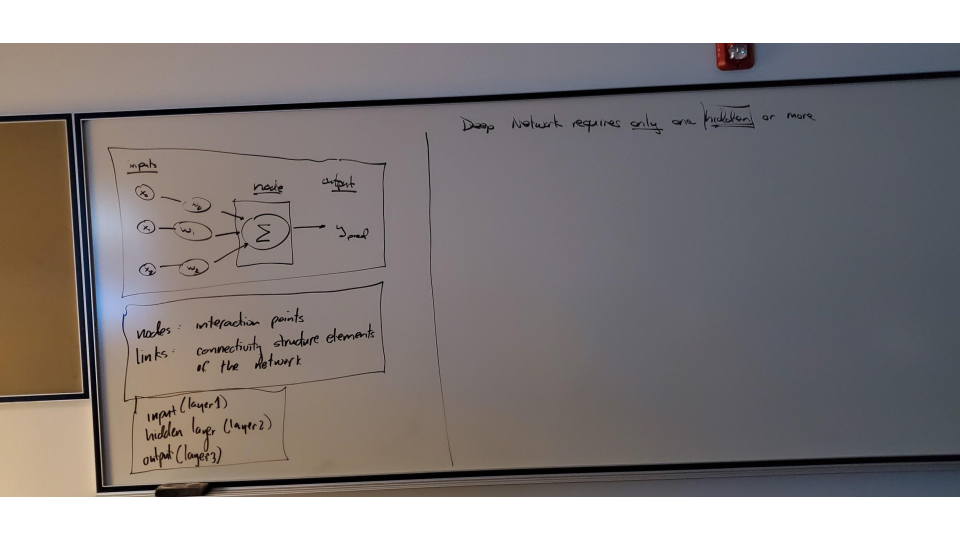 inputs
node
output
x₀
w₀
x₁
w₁
Σ
y pred
x₂
w₂
nodes: interaction points
links: connectivity structure elements
of the network
input (layer 1)
hidden layer (layer 2)
output (layer 3)
Deep Network requires only one hidden or more